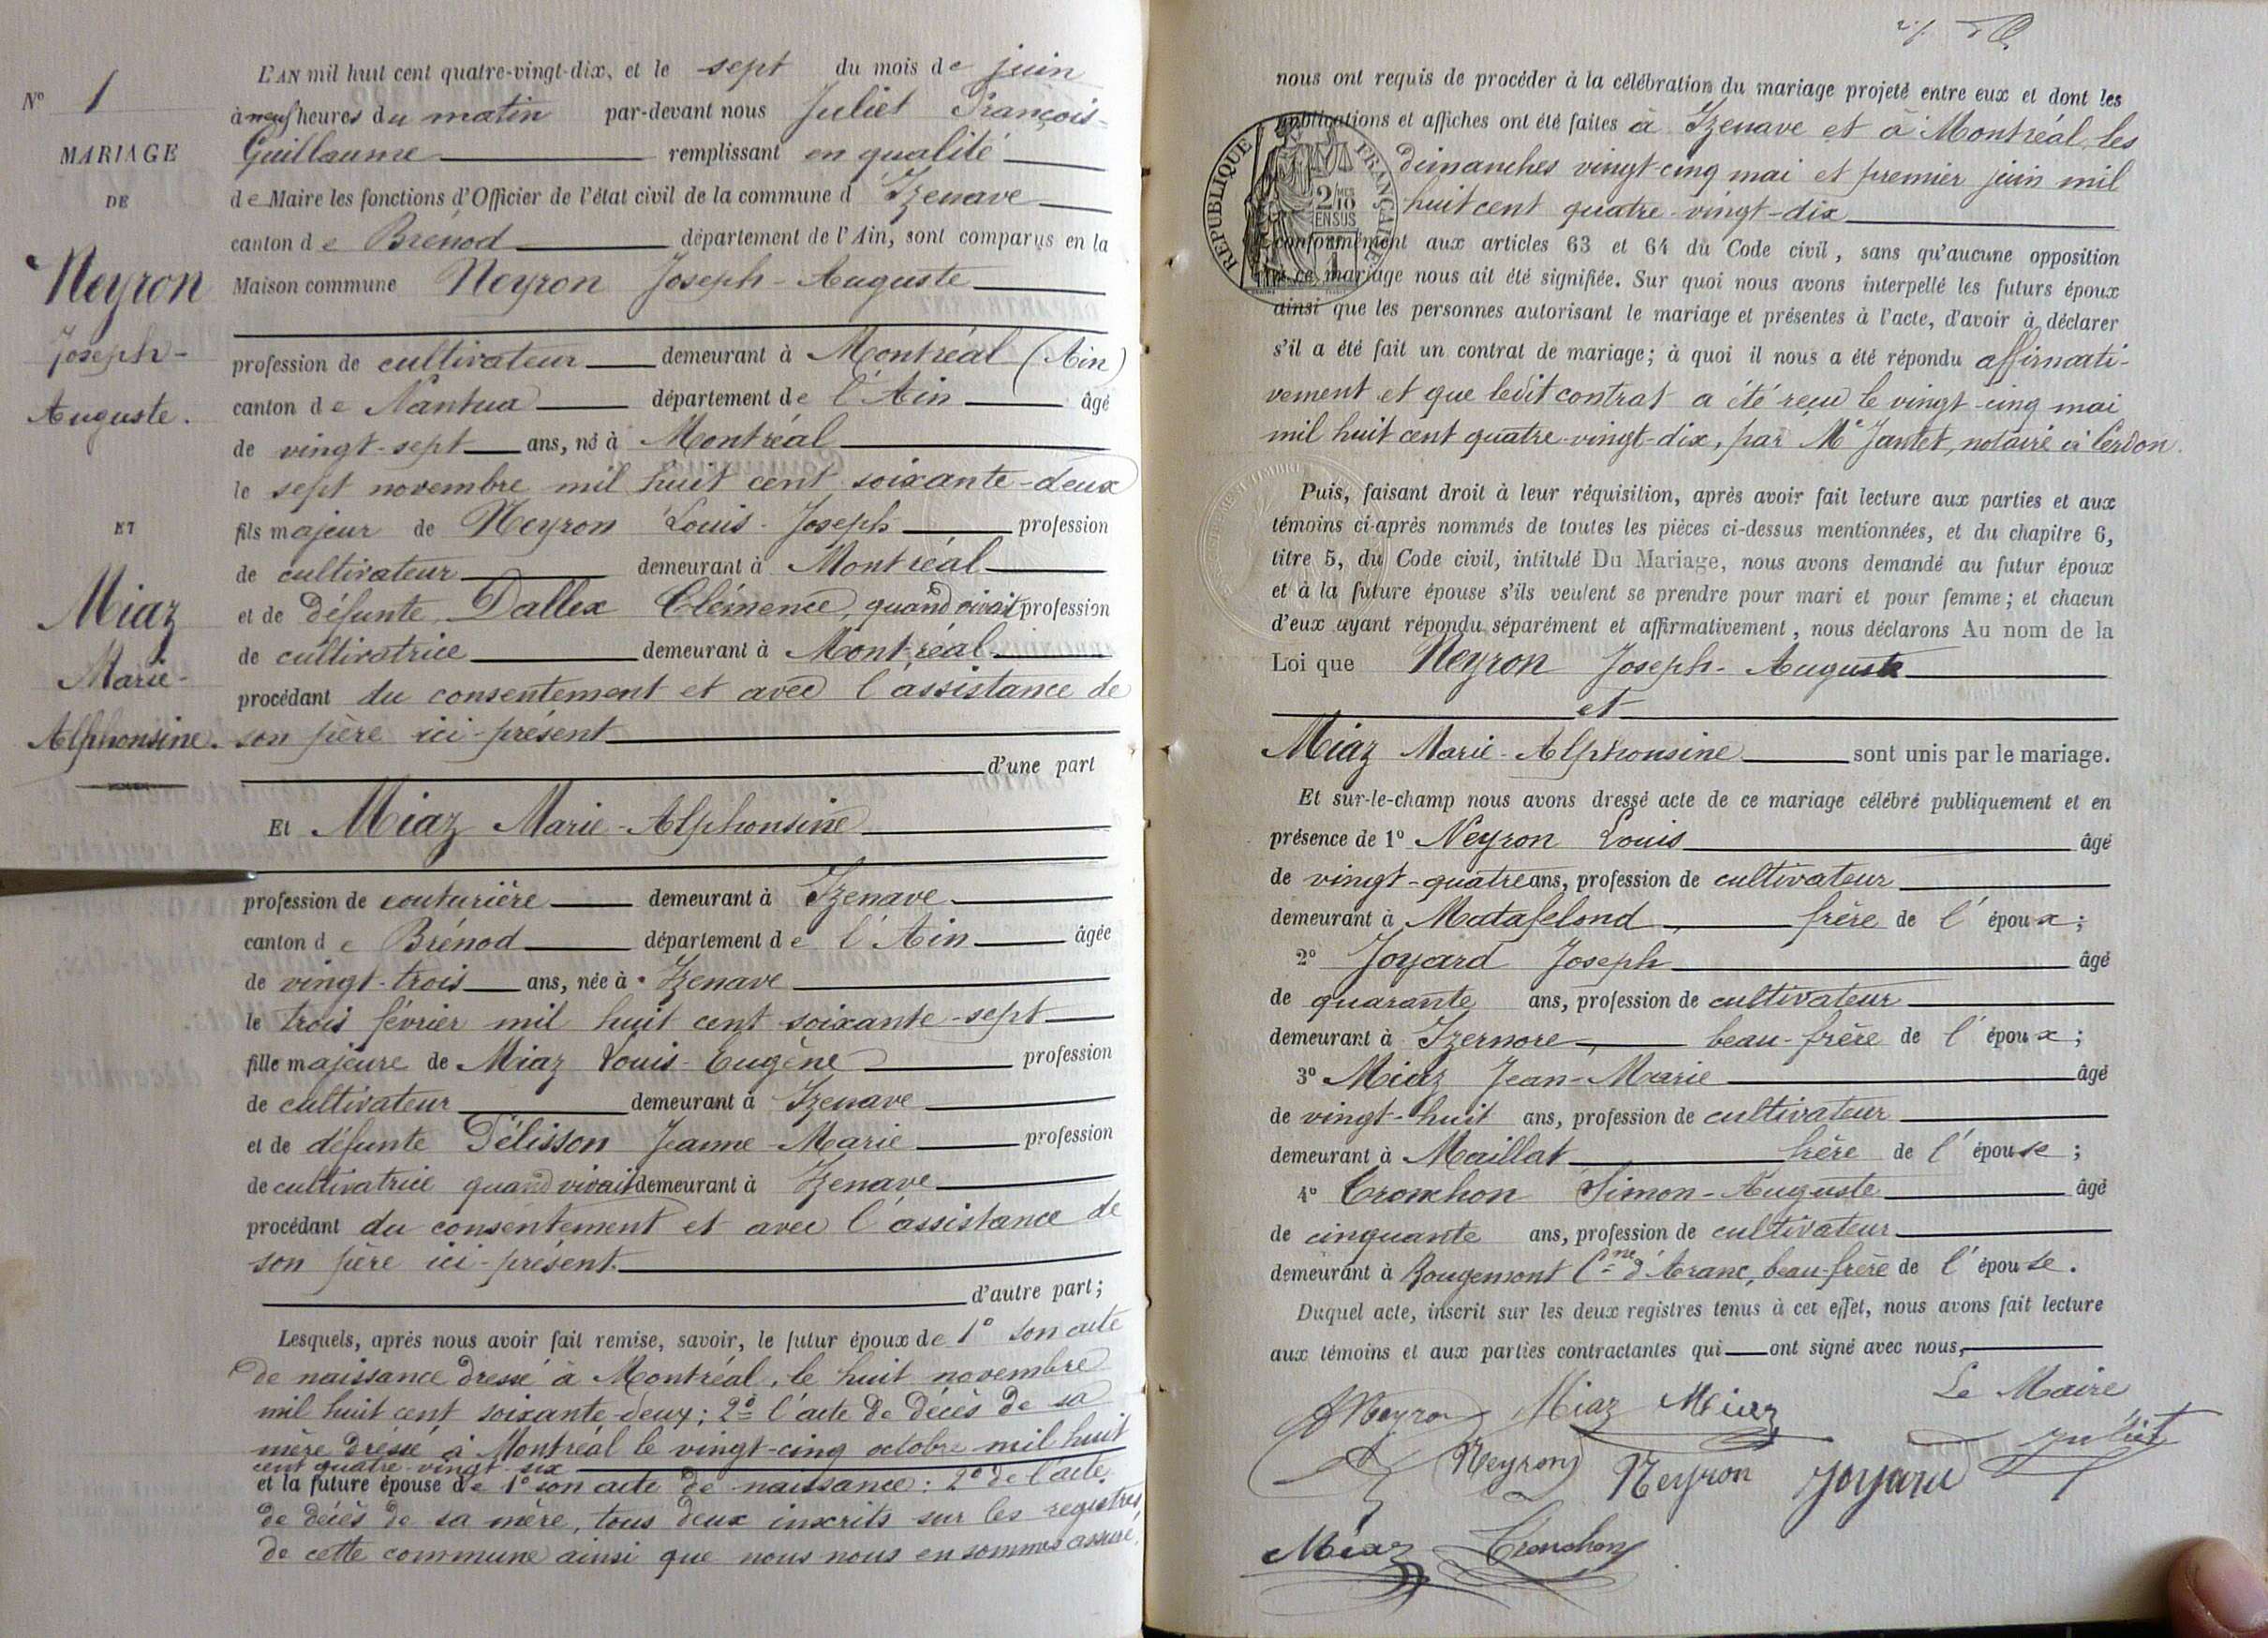 Nº 1
MARIAGE
DE
Neyron
Joseph-
Auguste.
ET
Miaz
Marie-
Alphonsine.
L'AN mil huit cent quatre-vingt-dix, et le sept du mois de juin
à neuf heures du matin par-devant nous Juliet François-
Guillaume remplissant en qualité
de Maire les fonctions d'Officier de l'état civil de la commune d Izenave
canton de Brénod département de l'Ain, sont comparus en la
Maison commune Neyron Joseph-Auguste
profession de cultivateur demeurant à Montréal (Ain)
canton de Nantua département de l'Ain âgé
de vingt-sept ans, né à Montréal
le sept novembre mil huit cent soixante-deux
fils majeur de Neyron Louis-Joseph profession
de cultivateur demeurant à Montréal
et de défunte Dallex Clémence, quand vivait profession
de cultivatrice demeurant à Montréal
procédant du consentement et avec l'assistance de
son père ici-présent
d'une part
Et Miaz Marie-Alphonsine
profession de couturière demeurant à Izenave
canton de Brénod département de l'Ain âgée
de vingt-trois ans, née à Izenave
le trois février mil huit cent soixante-sept
fille majeure de Miaz Louis-Eugène profession
de cultivateur demeurant à Izenave
et de défunte Pélisson Jeanne-Marie profession
de cultivatrice quand vivait demeurant à Izenave
procédant du consentement et avec l'assistance de
son père ici-présent.
d'autre part;
Lesquels, après nous avoir fait remise, savoir, le futur époux de 1º son acte
de naissance dressé à Montréal, le huit novembre
mil huit cent soixante-deux; 2º l'acte de décès de sa
mère dressé à Montréal le vingt-cinq octobre mil huit
cent quatre-vingt-six
et la future épouse de 1º son acte de naissance: 2º de l'acte
de décès de sa mère, tous deux inscrits sur les registres
de cette commune ainsi que nous nous en sommes assuré,
nous ont requis de procéder à la célébration du mariage projeté entre eux et dont les
publications et affiches ont été faites à Izenave et à Montréal, les
dimanches vingt-cinq mai et premier juin mil
huit cent quatre-vingt-dix
RÉPUBLIQUE FRANÇAISE
2 10
EN SUS
conformément aux articles 63 et 64 du Code civil, sans qu'aucune opposition
à ce mariage nous ait été signifiée. Sur quoi nous avons interpellé les futurs époux
ainsi que les personnes autorisant le mariage et présentes à l'acte, d'avoir à déclarer
s'il a été fait un contrat de mariage; à quoi il nous a été répondu affirmati-
vement et que ledit contrat a été reçu le vingt-cinq mai
mil huit cent quatre-vingt-dix, par Me Jantet, notaire à Cerdon.
Puis, faisant droit à leur réquisition, après avoir fait lecture aux parties et aux
témoins ci-après nommés de toutes les pièces ci-dessus mentionnées, et du chapitre 6,
titre 5, du Code civil, intitulé Du Mariage, nous avons demandé au futur époux
et à la future épouse s'ils veulent se prendre pour mari et pour femme; et chacun
d'eux ayant répondu séparément et affirmativement, nous déclarons Au nom de la
Loi que Neyron Joseph-Auguste
et
Miaz Marie-Alphonsine sont unis par le mariage.
Et sur-le-champ nous avons dressé acte de ce mariage célébré publiquement et en
présence de 1º Neyron Louis âgé
de vingt-quatre ans, profession de cultivateur
demeurant à Matafelond, frère de l'époux;
2º Joyard Joseph âgé
de quarante ans, profession de cultivateur
demeurant à Izernore, beau-frère de l'époux;
3º Miaz Jean-Marie âgé
de vingt-huit ans, profession de cultivateur
demeurant à Maillat frère de l'épouse;
4º Cronchon Simon-Auguste âgé
de cinquante ans, profession de cultivateur
demeurant à Rougemont Cne d'Aranc, beau-frère de l'épouse.
Duquel acte, inscrit sur les deux registres tenus à cet effet, nous avons fait lecture
aux témoins et aux parties contractantes qui ont signé avec nous,
Le Maire
JNeyron Miaz Miaz Juliet
Neyron Neyron Joyard
Miaz Cronchon